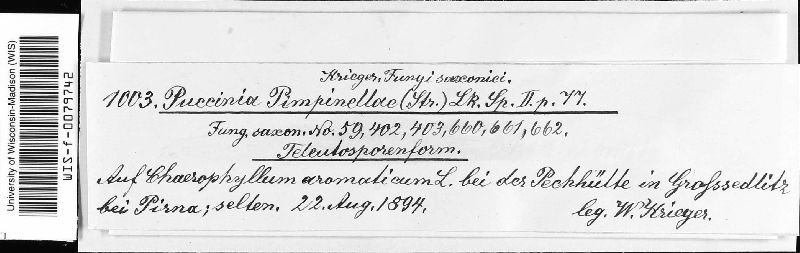 University of Wisconsin-Madison (WIS)
WIS-f-0079742
Krieger, Fungi saxonici.
1003. Puccinia Pimpinellae (Str.) Lk. Sp. II. p. 77.
Fung. saxon. No. 59, 402, 403, 660, 661, 662.
Teleutosporenform.
Auf Chaerophyllum aromaticum L. bei der Pechhütte in Grosssedlitz
bei Pirna; selten. 22. Aug. 1894. leg. W. Krieger.